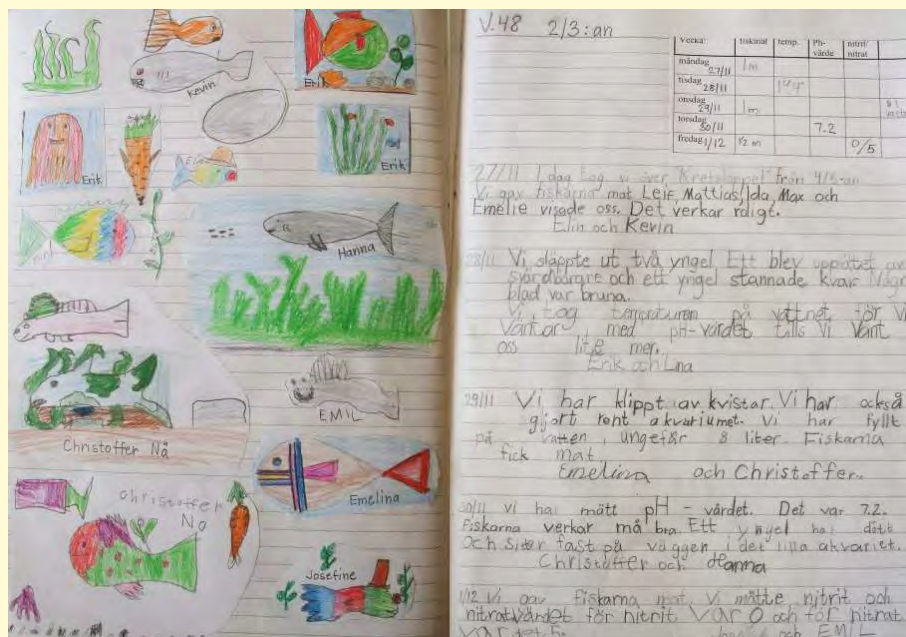 Kevin
Erik
Erik
Erik
Elin
Hanna
EMIL
Christoffer Nå
Emelina
Christoffer
Nå
Josefine
V.48 2/3:an
Vecka: fiskmat temp. Ph-värde nitrit/nitrat
måndag 27/11 1 m
tisdag 28/11
onsdag 29/11 1 m
torsdag 30/11 7.2
fredag 1/12 ½ m 0/5
27/11 Idag tog vi över Kretsloppet från 4/5:an
Vi gav fiskarna mat Leif, Mattias, Ida, Max och
Emelie visade oss. Det verkar roligt.
Elin och Kevin
28/11 Vi släppte ut två yngel Ett blev uppätet av
svärdbärare och ett yngel stannade kvar
blad var bruna.
Vi tog temperaturen på vattnet för Vi
Väntar, med pH-värdet tills Vi Vant
oss lite mer.
Erik och Lina
29/11 Vi har klippt av kvistar. Vi har också
gjort rent akvariumet. Vi har fyllt
på vatten, ungefär 8 liter. Fiskarna
fick mat.
Emelina och Christoffer.
30/11 Vi har mätt pH-värdet. Det var 7.2.
Fiskarna verkar må bra. Ett yngel har dött
Och sitter fast på väggen i det lilla akvariet.
Christoffer och Hanna
1/12 Vi gav fiskarna mat. Vi mätte nitrit och
nitratvärdet för nitrit var 0 och för nitrat
var det 5.